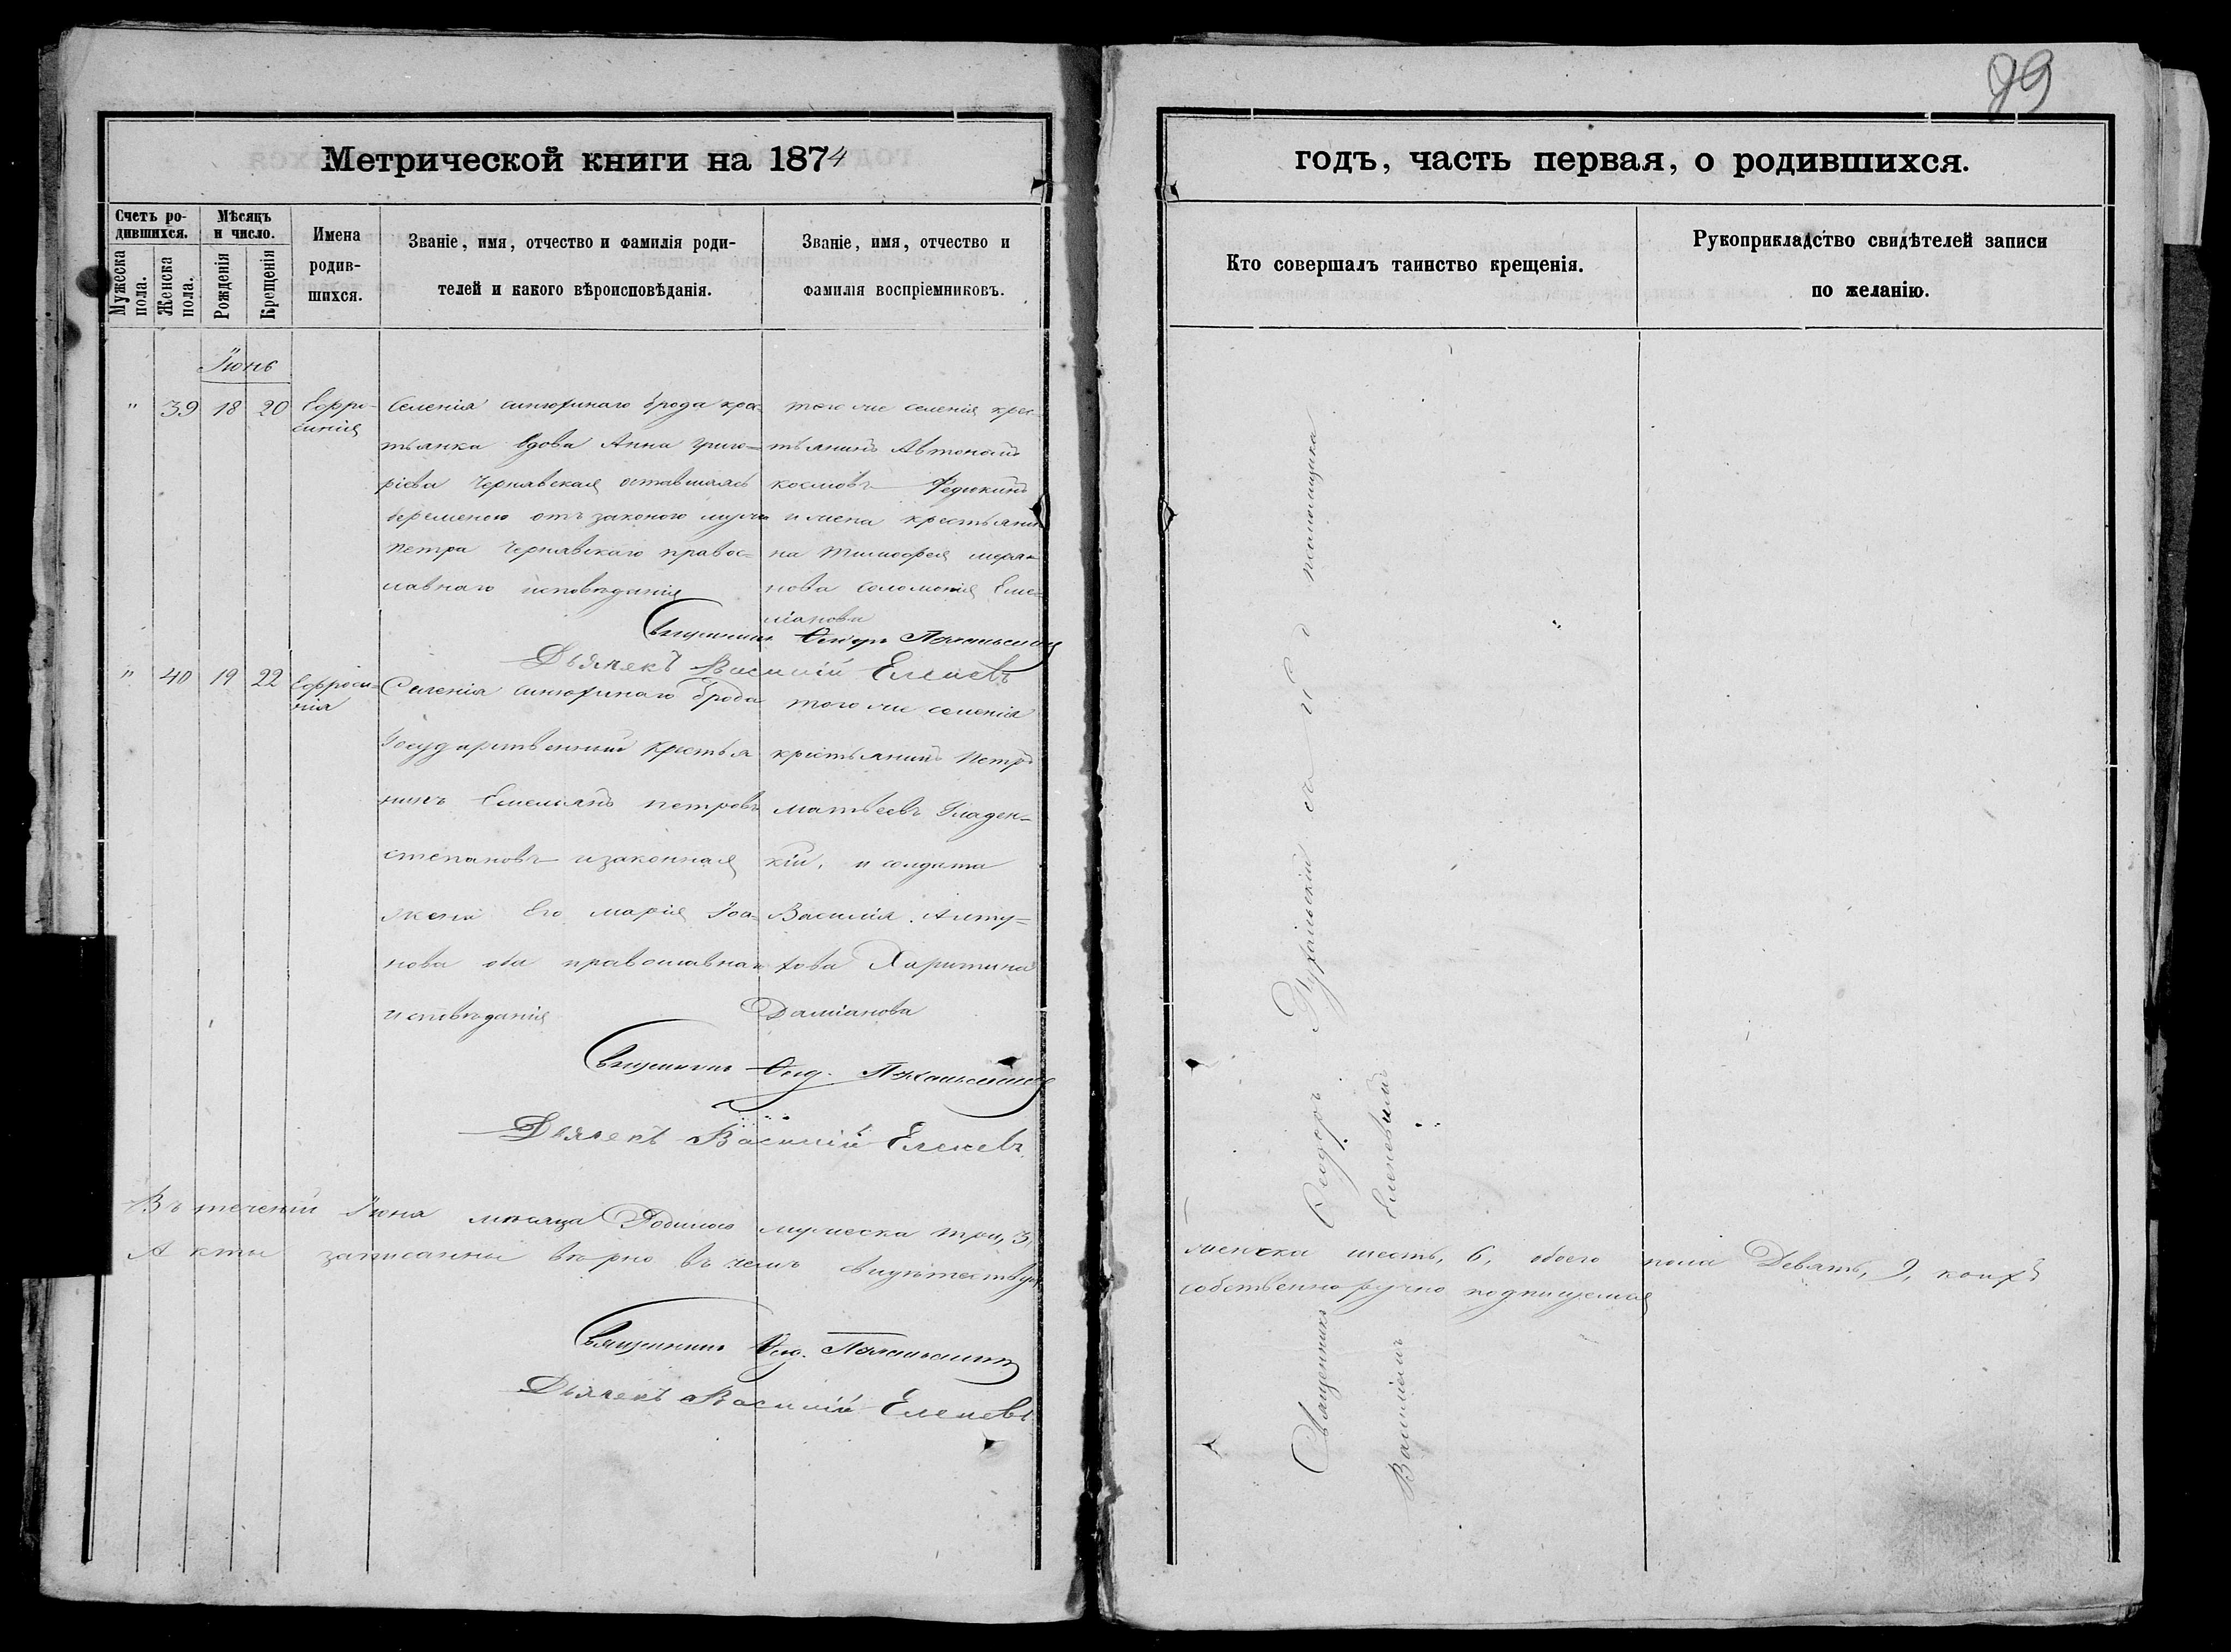 99
Метрической книги на 1874
годъ, часть первая, о родившихся.
Счетъ ро-
дившихся.
Мужеска
пола.
Женска
пола.
Мѣсяцъ
и число.
Рожденія
Крещенія
Имена
родив-
шихся.
Званіе, имя, отчество и фамилія роди-
телей и какого вѣроисповѣданія.
Званіе, имя, отчество и
фамилія воспріемниковъ.
Кто совершалъ таинство крещенія.
Рукоприкладство свидѣтелей записи
по желанію.
Іюнь
" 39 18 20
Евфро-
синія
Селенія синюхинаго брода крес-
тьянка вдова Анна Григо-
ріева Чернявская оставшаяся
беременою отъ законого мужа
Петра Чернявскаго правос-
лавнаго исповѣданія
того же селенія крес-
тьянинъ Автономъ
космовъ Федюкинъ
и жена крестьяни
на Тимофея
нова Соломонія Еме-
ліанова
Священникъ Ѳеодоръ
Дьячекъ Василій Еленевъ
" 40 19 22
Евфроси-
нія
Селенія синюхинаго брода
Государственный крестья
нинъ Емельянъ петровъ
степановъ и законная
жена Его марія Іоа-
нова оба православнаго
исповѣданія
того же селенія
крестьянинъ Петръ
матвеевъ Гладен-
кій, и солдата
Василія Алту-
хова Харитина
Даміанова
Священникъ Ѳеод.
Дьячекъ Василій Еленевъ
Въ теченіи Іюня мѣсяца Родилось мужеска три, 3,
женска шесть, 6, обоего пола Девять, 9, коихъ
Акты записанны вѣрно въ чемъ свидѣтествуя
собственноручно подпишемся
Священникъ Ѳеод.
Дьячекъ Василій Еленевъ
Священникъ Ѳеодоръ съ и д псаломщика
Василіемъ Еленевымъ